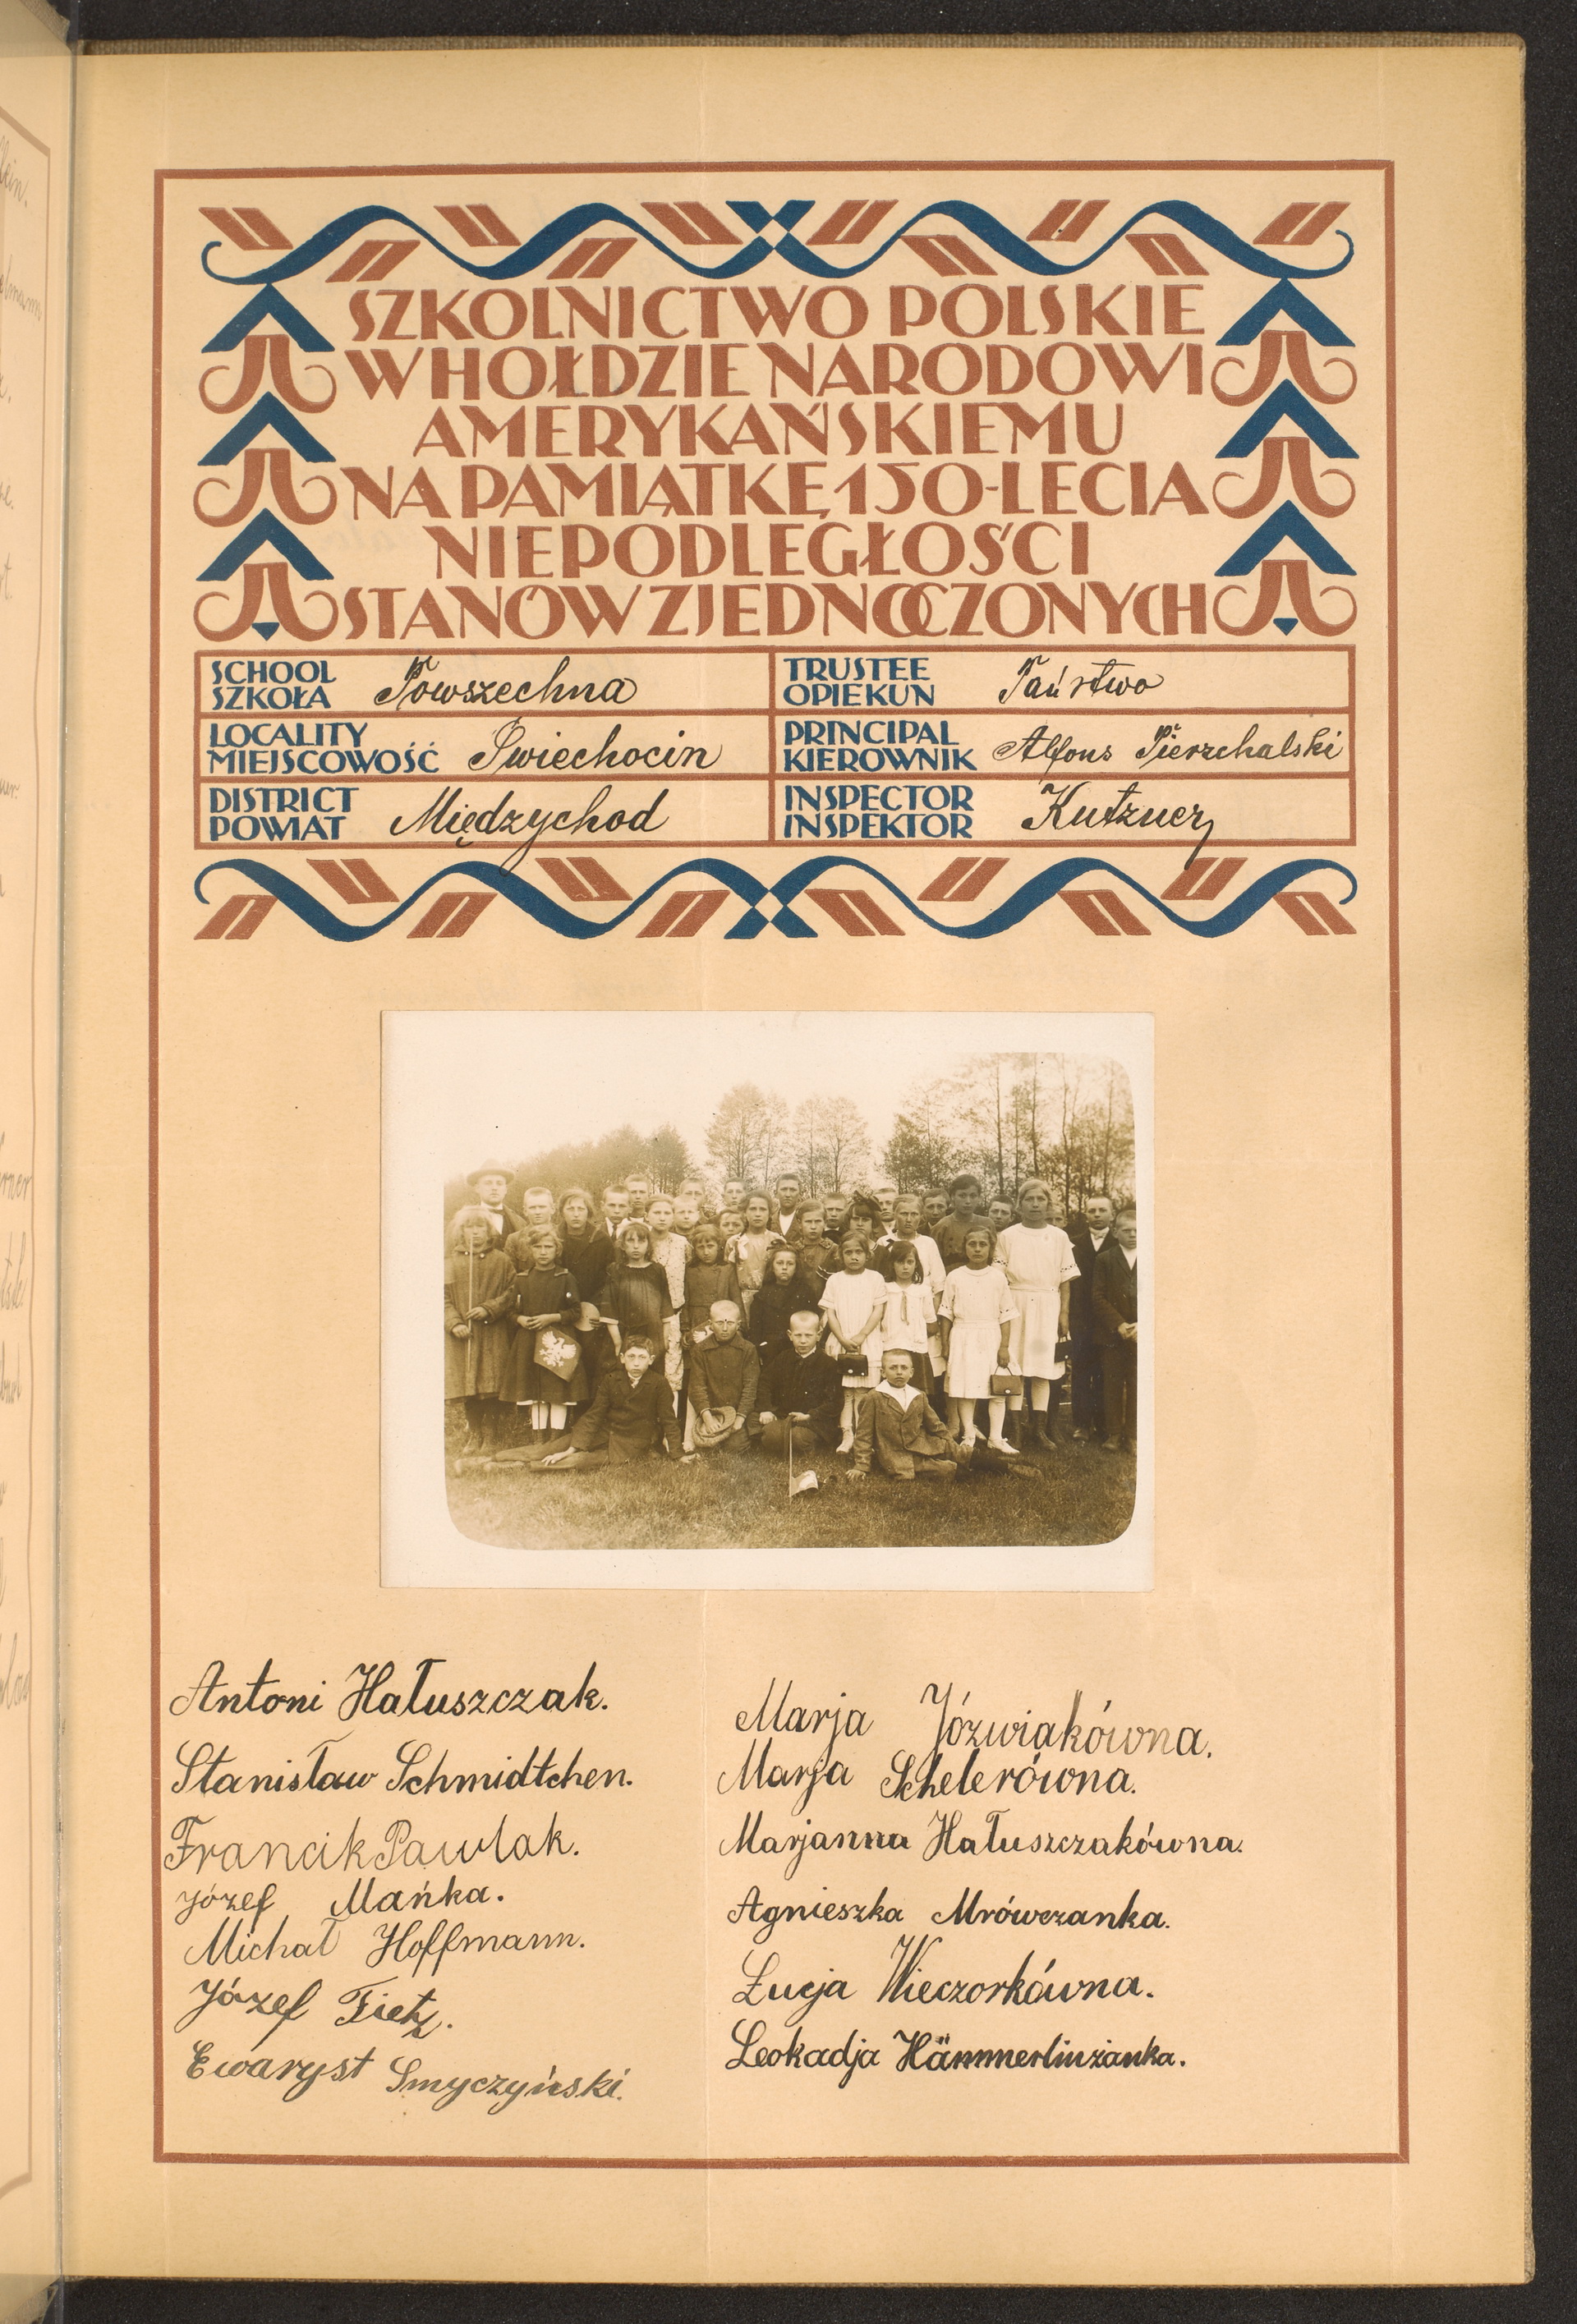 SZKOLNICTWO POLSKIE
W HOŁDZIE NARODOWI
AMERYKAŃSKIEMU
NA PAMIĄTKĘ 150-LECIA
NIEPODLEGŁOŚCI
STANÓW ZJEDNOCZONYCH
SCHOOL
SZKOŁA Powszechna
TRUSTEE
OPIEKUN Państwo
LOCALITY
MIEJSCOWOŚĆ Świechocin
PRINCIPAL
KIEROWNIK Alfons Pierzchalski
DISTRICT
POWIAT Międzychod
INSPECTOR
INSPEKTOR Kutzner
Antoni Hałuszczak.
Stanisław Schmidtchen.
Francik Pawlak.
Józef Mańka.
Michał Hoffmann.
Józef Fietz.
Ewaryst Smyczyński.
Marja Jóźwiakówna.
Marja Schelerówna.
Marjanna Hałuszczakówna.
Agnieszka Mrówczanka.
Łucja Wieczorkówna.
Leokadja Hämmerlinżanka.